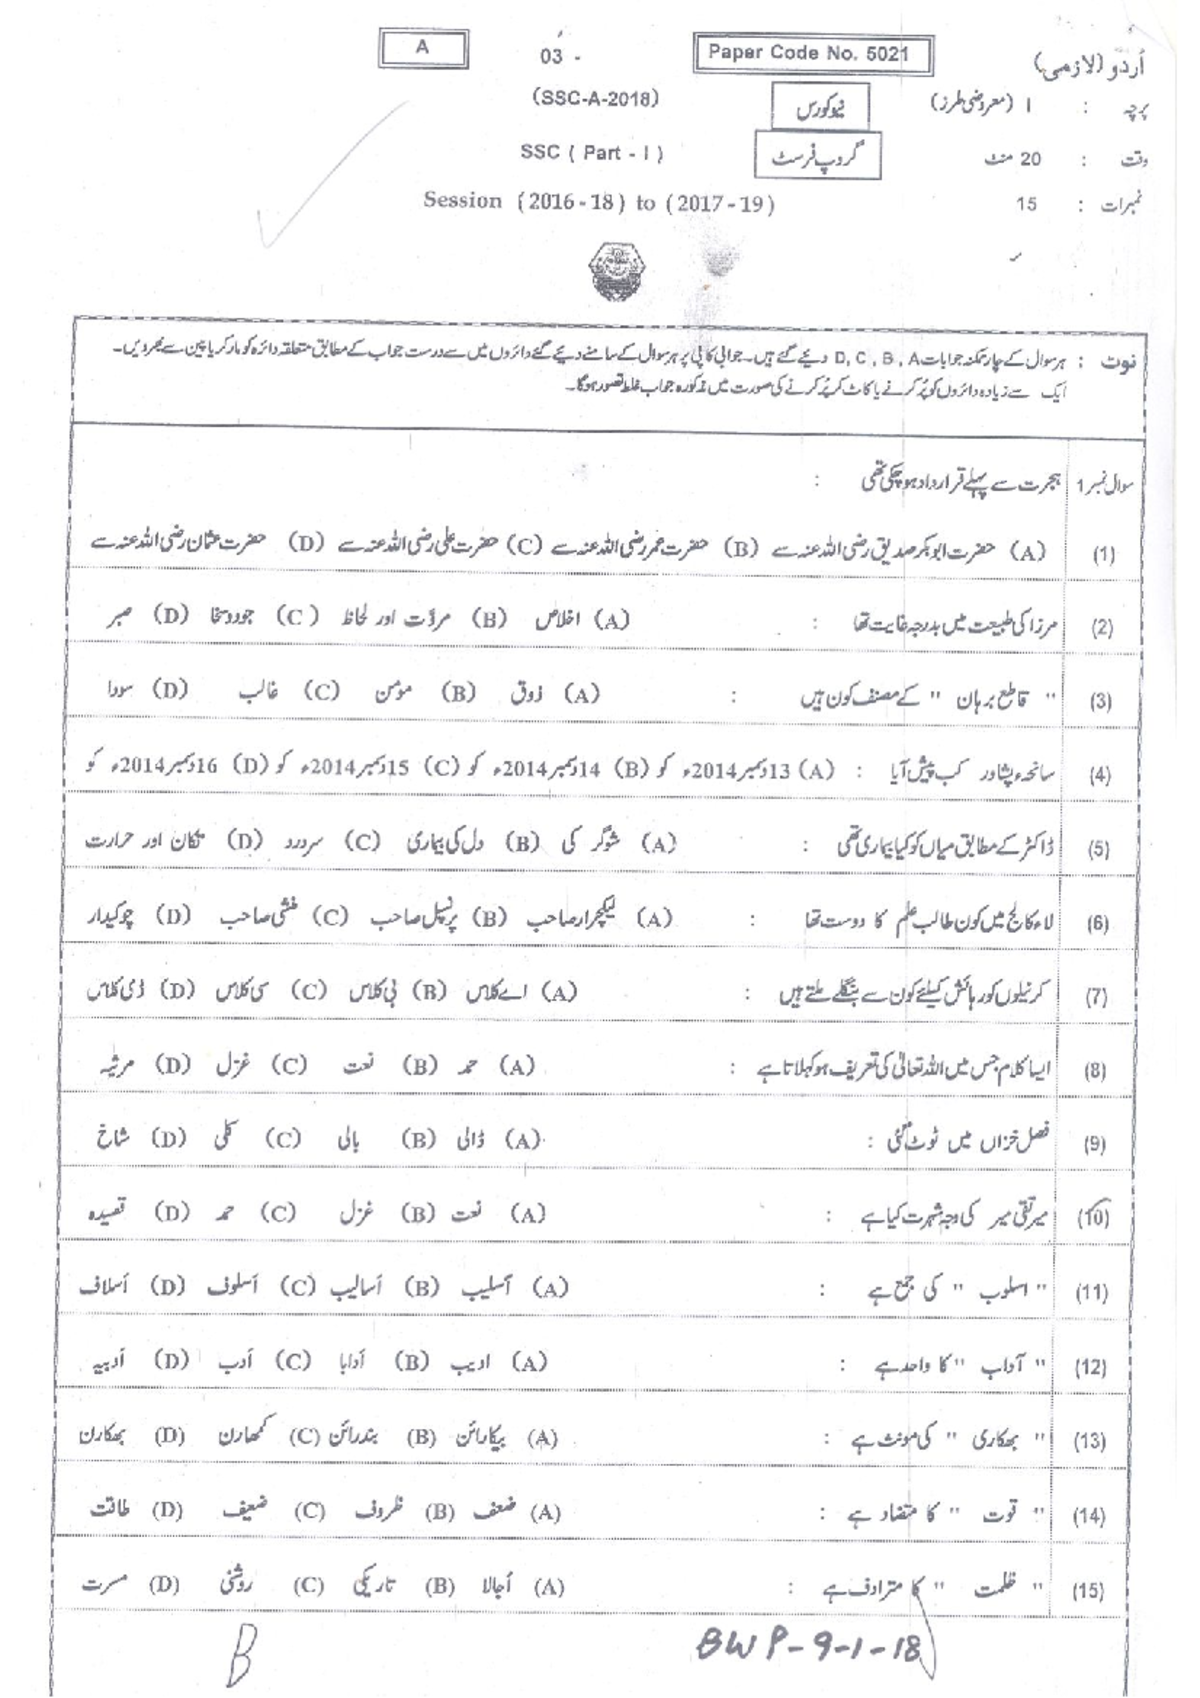 A
03 -
Paper Code No. 5021
اُردو (لازمی)
(SSC-A-2018)
نیوکورس
پرچہ : I (معروضی طرز)
SSC ( Part - I )
گروپ فرسٹ
وقت : 20 منٹ
Session (2016-18) to (2017-19)
نمبرات : 15
نوٹ : ہر سوال کے چار ممکنہ جوابات D, C, B, A دیئے گئے ہیں۔ جوابی کاپی پر ہر سوال کے سامنے دیئے گئے دائروں میں سے درست جواب کے مطابق متعلقہ دائرہ کو مارکر یا پین سے بھر دیں۔
ایک سے زیادہ دائروں کو پُر کرنے یا کاٹ کر پُر کرنے کی صورت میں مذکورہ جواب غلط تصور ہوگا۔
سوال نمبر 1 ہجرت سے پہلے قرارداد ہو چکی تھی :
(1) (A) حضرت ابوبکر صدیق رضی اللہ عنہ سے (B) حضرت عمر رضی اللہ عنہ سے (C) حضرت علی رضی اللہ عنہ سے (D) حضرت عثمان رضی اللہ عنہ سے
(2) مرزا کی طبیعت میں بدرجہ غایت تھا : (A) اخلاص (B) مروّت اور لحاظ (C) جود و سخا (D) صبر
(3) " قاطع برہان " کے مصنف کون ہیں : (A) ذوق (B) مومن (C) غالب (D) سودا
(4) سانحہء پشاور کب پیش آیا : (A) 13 دسمبر 2014ء کو (B) 14 دسمبر 2014ء کو (C) 15 دسمبر 2014ء کو (D) 16 دسمبر 2014ء کو
(5) ڈاکٹر کے مطابق میاں کو کیا بیماری تھی : (A) شوگر کی (B) دل کی بیماری (C) سر درد (D) تکان اور حرارت
(6) لاء کالج میں کون طالب علم کا دوست تھا : (A) لیکچرار صاحب (B) پرنسپل صاحب (C) منشی صاحب (D) چوکیدار
(7) کرنیلوں کو رہائش کیلئے کون سے بنگلے ملتے ہیں : (A) اے کلاس (B) بی کلاس (C) سی کلاس (D) ڈی کلاس
(8) ایسا کلام جس میں اللہ تعالیٰ کی تعریف ہو کہلاتا ہے : (A) حمد (B) نعت (C) غزل (D) مرثیہ
(9) فصل خزاں میں ٹوٹ گئی : (A) ڈالی (B) بالی (C) کلی (D) شاخ
(10) میر تقی میر کی وجہ شہرت کیا ہے : (A) نعت (B) غزل (C) حمد (D) قصیدہ
(11) " اسلوب " کی جمع ہے : (A) اَسلیب (B) اَسالیب (C) اَسلوف (D) اَسلاف
(12) " آداب " کا واحد ہے : (A) ادیب (B) اَدابا (C) اَدب (D) اَدبیہ
(13) " بھکاری " کی مونث ہے : (A) بیکارائن (B) بندرائن (C) کمھارن (D) بھکارن
(14) " قوت " کا متضاد ہے : (A) ضعف (B) ظروف (C) ضعیف (D) طاقت
(15) " ظلمت " کا مترادف ہے : (A) اُجالا (B) تاریکی (C) روشنی (D) مسرت
B
BWP-9-1-18